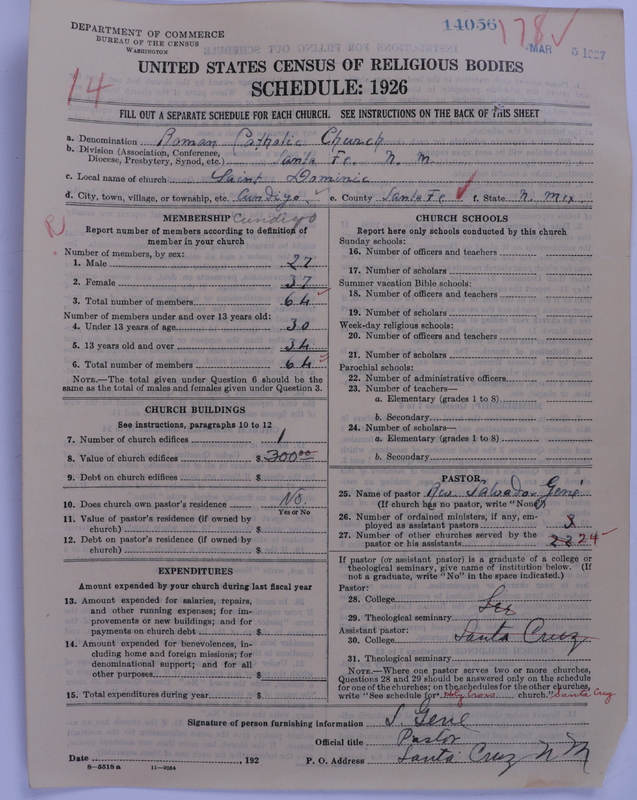 DEPARTMENT OF COMMERCE
BUREAU OF THE CENSUS
WASHINGTON
14056
178 ✓
MAR 5 1927
14
UNITED STATES CENSUS OF RELIGIOUS BODIES
SCHEDULE: 1926
FILL OUT A SEPARATE SCHEDULE FOR EACH CHURCH. SEE INSTRUCTIONS ON THE BACK OF THIS SHEET
a. Denomination Roman Catholic Church
b. Division (Association, Conference,
Diocese, Presbytery, Synod, etc.) Santa Fe. N. M.
c. Local name of church Saint Dominic
d. City, town, village, or township, etc. Cundiyo ✓ e. County Santa Fe ✓ f. State N. Mex
R
MEMBERSHIP Cundiyo
Report number of members according to definition of
member in your church
Number of members, by sex:
1. Male 27
2. Female 37
3. Total number of members 64 ✓
Number of members under and over 13 years old:
4. Under 13 years of age 30
5. 13 years old and over 34
6. Total number of members 64
NOTE.—The total given under Question 6 should be the
same as the total of males and females given under Question 3.
CHURCH BUILDINGS
See instructions, paragraphs 10 to 12
7. Number of church edifices 1
8. Value of church edifices $ 300.00
9. Debt on church edifices $
10. Does church own pastor's residence No.
Yes or No
11. Value of pastor's residence (if owned by
church) $
12. Debt on pastor's residence (if owned by
church) $
EXPENDITURES
Amount expended by your church during last fiscal year
13. Amount expended for salaries, repairs,
and other running expenses; for im-
provements or new buildings; and for
payments on church debt $
14. Amount expended for benevolences, in-
cluding home and foreign missions; for
denominational support; and for all
other purposes $
15. Total expenditures during year $
CHURCH SCHOOLS
Report here only schools conducted by this church
Sunday schools:
16. Number of officers and teachers
17. Number of scholars
Summer vacation Bible schools:
18. Number of officers and teachers
19. Number of scholars
Week-day religious schools:
20. Number of officers and teachers
21. Number of scholars
Parochial schools:
22. Number of administrative officers
23. Number of teachers—
a. Elementary (grades 1 to 8)
b. Secondary
24. Number of scholars—
a. Elementary (grades 1 to 8)
b. Secondary
PASTOR
25. Name of pastor Rev Salvador Gené
(If church has no pastor, write "None")
26. Number of ordained ministers, if any, em-
ployed as assistant pastors 3
27. Number of other churches served by the
pastor or his assistants 22 24
If pastor (or assistant pastor) is a graduate of a college or
theological seminary, give name of institution below. (If
not a graduate, write "No" in the space indicated.)
Pastor:
28. College
See
29. Theological seminary
Assistant pastor: Santa Cruz
30. College
31. Theological seminary
NOTE.—Where one pastor serves two or more churches,
Questions 28 and 29 should be answered only on the schedule
for one of the churches; on the schedules for the other churches,
write "See schedule for Holy Cross church." Santa Cruz
Signature of person furnishing information S. Gene
Official title Pastor
Date , 192 P. O. Address Santa Cruz N M
8—5518 a 11—9054